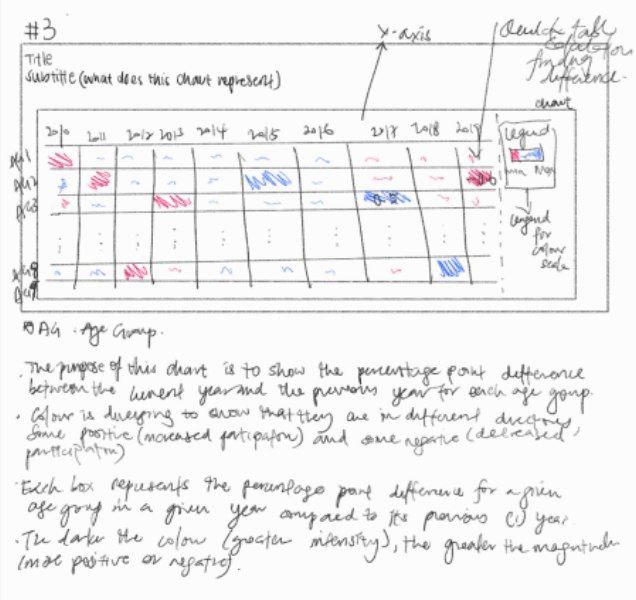 #3
x-axis
Quick table
calculation
finding
difference.
Title
Subtitle (what does this chart represent)
chart
2010 2011 2012 2013 2014 2015 2016 2017 2018 2019
Legend
AG1
AG2
AG3
min max
AG8
AG9
Legend
for
colour
scale
AG : Age Group.
. The purpose of this chart is to show the percentage point difference
between the current year and the previous year for each age group.
. Colour is diverging to show that they are in different directions,
some positive (increased participation) and some negative (decreased
participation)
. Each box represents the percentage point difference for a given
age group in a given year compared to its previous (1) year.
. The darker the colour (greater intensity), the greater the magnitude
(more positive or negative).